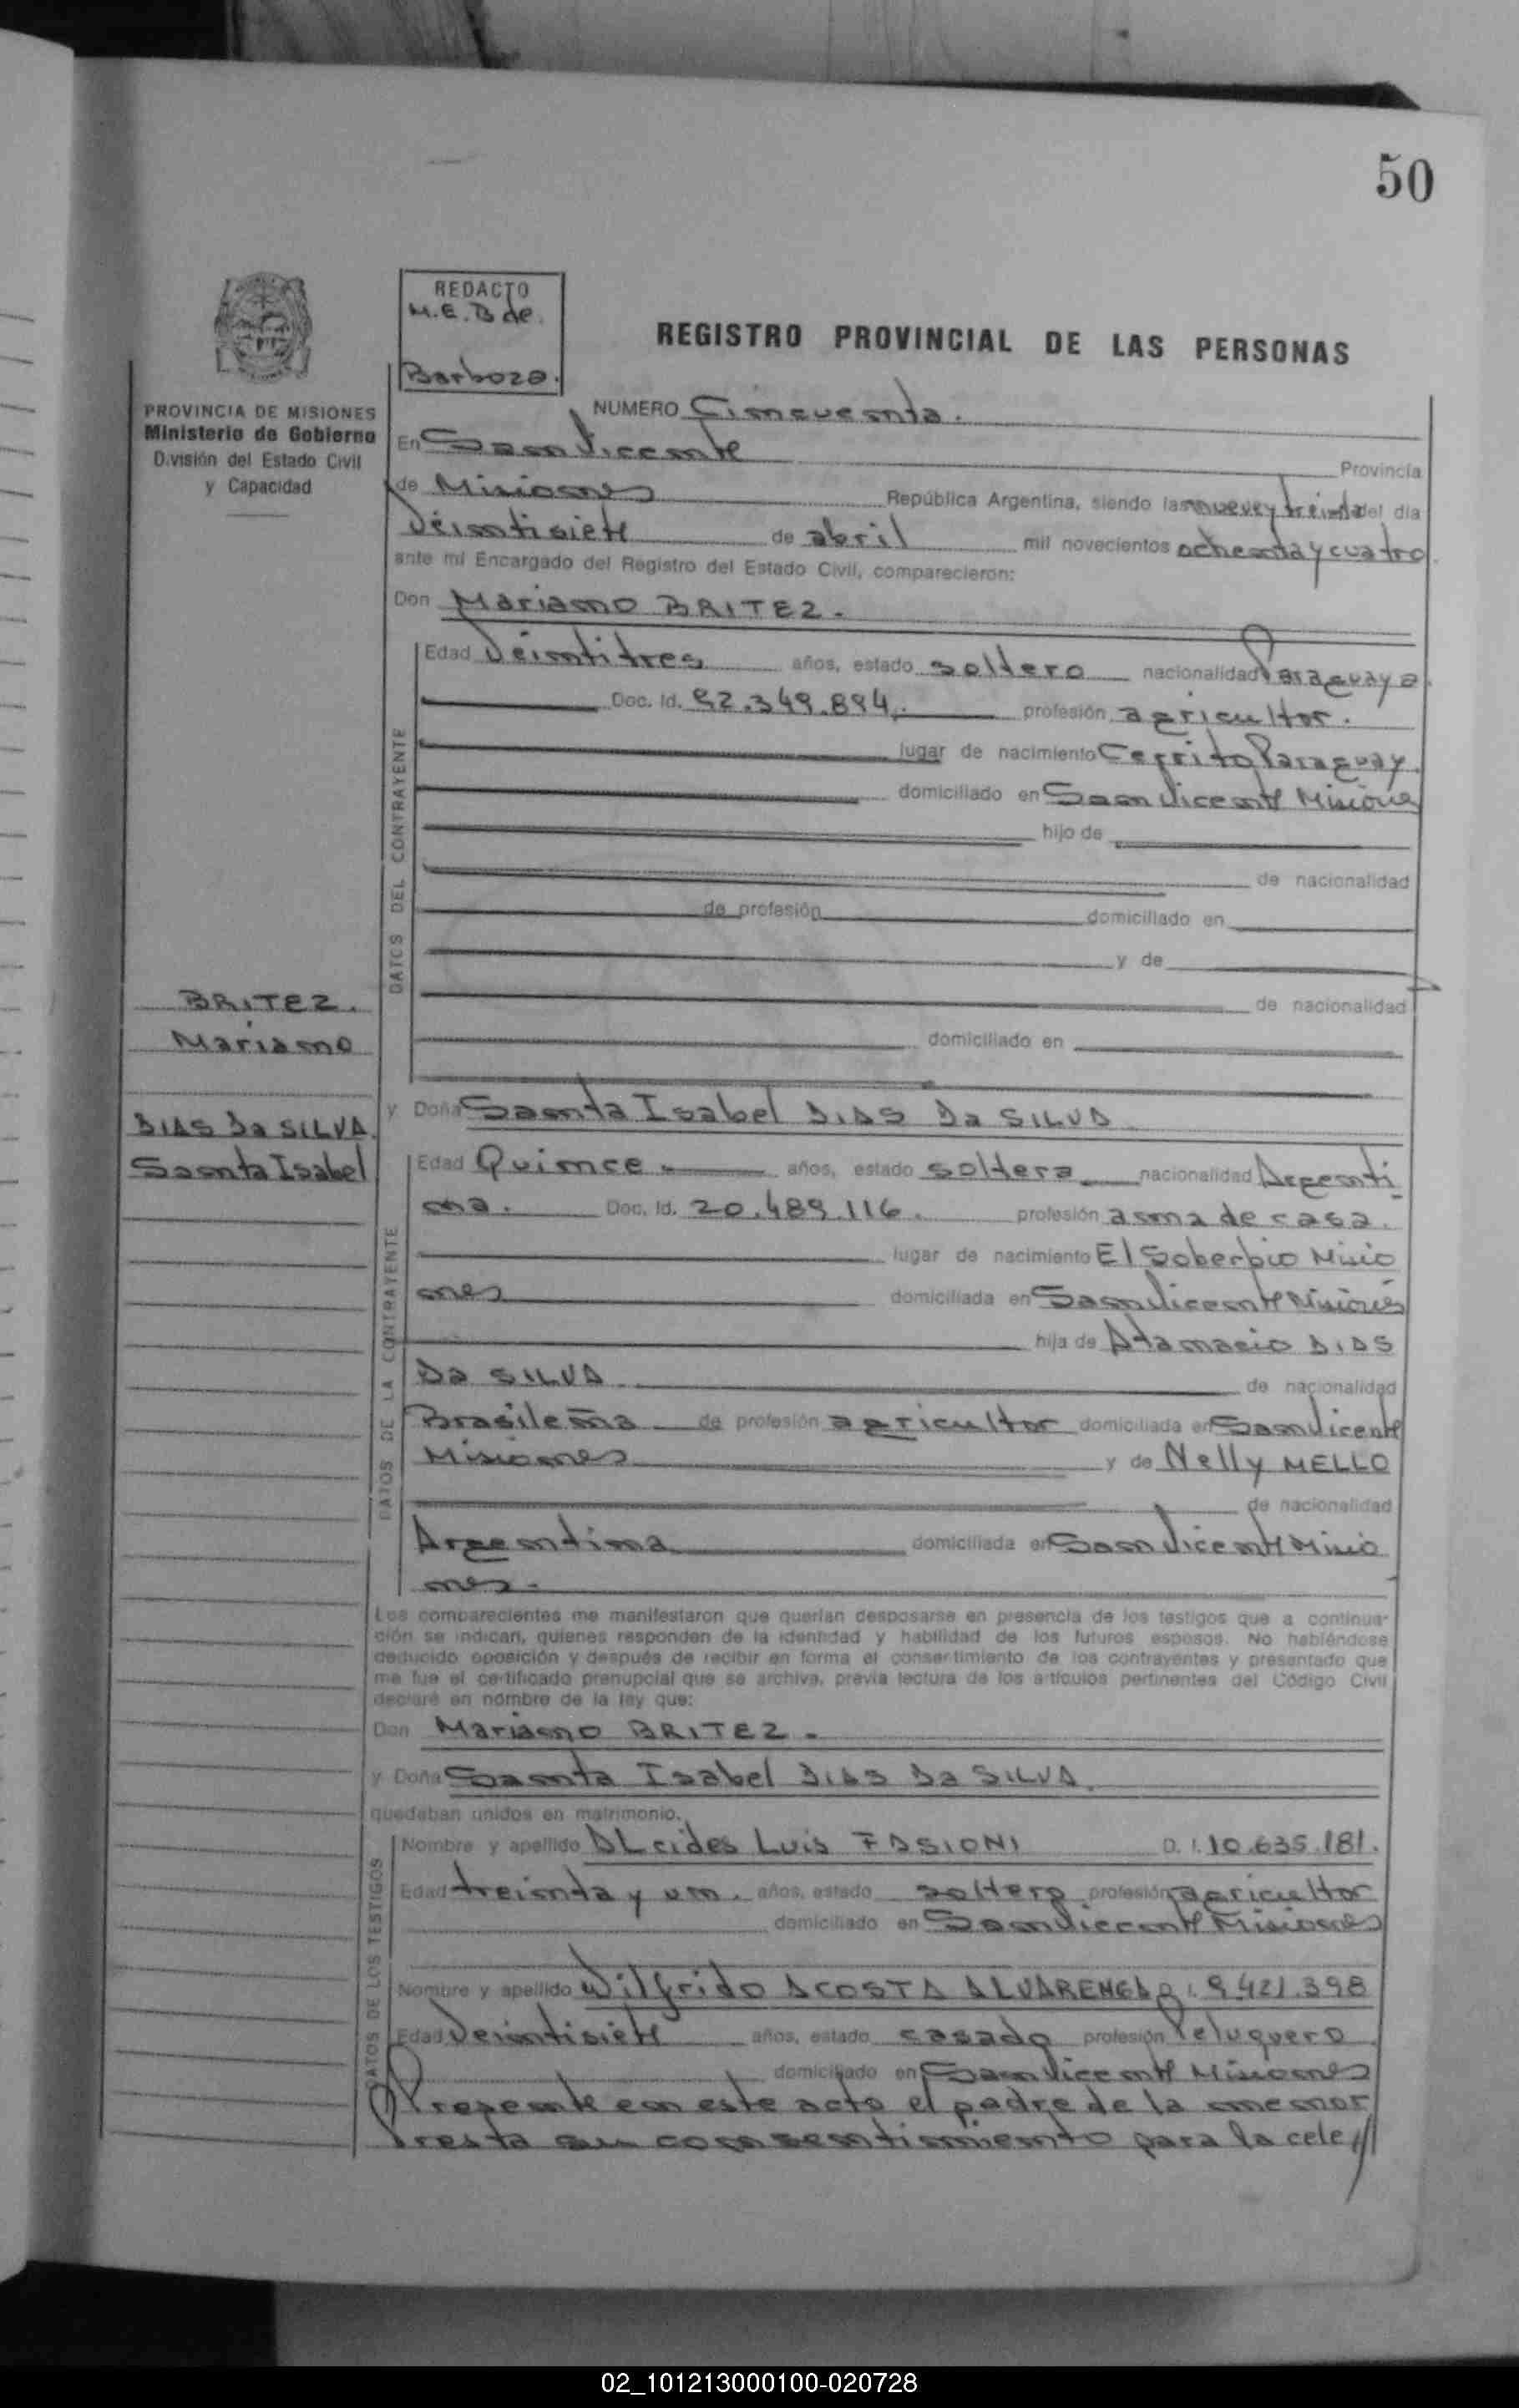 50
REDACTO
M.E.B de.
Barboza.
REGISTRO PROVINCIAL DE LAS PERSONAS
PROVINCIA DE MISIONES
Ministerio de Gobierno
División del Estado Civil
y Capacidad
NUMERO Cincuenta.
En San Vicente Provincia
de Misiones República Argentina, siendo las nueve y treinta del día
Veintisiete de abril mil novecientos ochenta y cuatro
ante mí Encargado del Registro del Estado Civil, comparecieron:
Don Mariano BRITEZ.
DATOS DEL CONTRAYENTE
Edad Veintitres años, estado soltero nacionalidad Paraguaya
Doc. Id. 92.349.894. profesión agricultor.
lugar de nacimiento Cerrito Paraguay
domiciliado en San Vicente Misiones
hijo de
de nacionalidad
de profesión domiciliado en
y de
de nacionalidad
domiciliado en
BRITEZ.
Mariano
DIAS Da SILVA
Santa Isabel
y Doña Santa Isabel DIAS Da SILVA
DATOS DE LA CONTRAYENTE
Edad Quince años, estado soltera nacionalidad Argenti
na. Doc. Id. 20.489.116. profesión ama de casa.
lugar de nacimiento El Soberbio Misio
nes domiciliada en San Vicente Misiones
hija de Atanacio DIAS
Da SILVA de nacionalidad
Brasileña de profesión agricultor domiciliada en San Vicente
Misiones y de Nelly MELLO
de nacionalidad
Argentina domiciliada en San Vicente Misio
nes.
Los comparecientes me manifestaron que querían desposarse en presencia de los testigos que a continua-
ción se indican, quienes responden de la identidad y habilidad de los futuros esposos. No habiéndose
deducido oposición y después de recibir en forma el consentimiento de los contrayentes y presentado que
me fue el certificado prenupcial que se archiva, previa lectura de los artículos pertinentes del Código Civil
declaré en nombre de la ley que:
Don Mariano BRITEZ.
y Doña Santa Isabel DIAS Da SILVA.
quedaban unidos en matrimonio.
DATOS DE LOS TESTIGOS
Nombre y apellido ALcides Luis FASIONI D. I. 10.635.181.
Edad treinta y un. años, estado soltero profesión agricultor
domiciliado en San Vicente Misiones
Nombre y apellido Wilfrido ACOSTA ALVARENGA D. I. 9.421.398
Edad Veintisiete años, estado casado profesión Peluquero
domiciliado en San Vicente Misiones
Presente en este acto el padre de la menor
Presta su consentimiento para la cele///
02_101213000100-020728